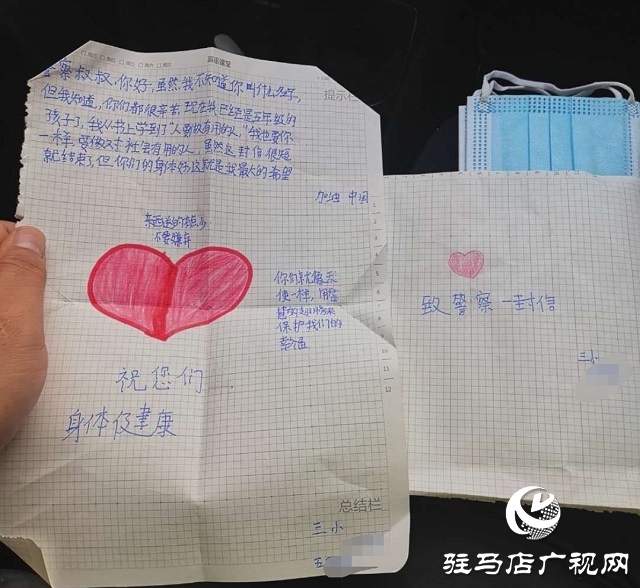 警察叔叔,你好,虽然我不知道你叫什么名字,
但我知道,你们都很辛苦,现在我已经是五年级的
孩子了,我从书上学到了"人要做有用的人,"我也要你
一样,要做对社会有用的人,虽然这封信很短
就结束了,但你们的身体好这就是我最大的希望
加油 中国
提示栏
东西送的很少
不要嫌弃
你们就像天
使一样,用
保护我们的
幸福
祝您们
身体健康
总结栏
三小
五
致警察一封信
三小
1
2
3
4
5
6
7
8
9
10
11
12
驻马店广视网